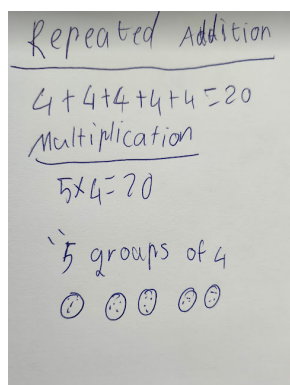 Repeated Addition
4+4+4+4+4=20
Multiplication
5×4=20
"5 groups of 4